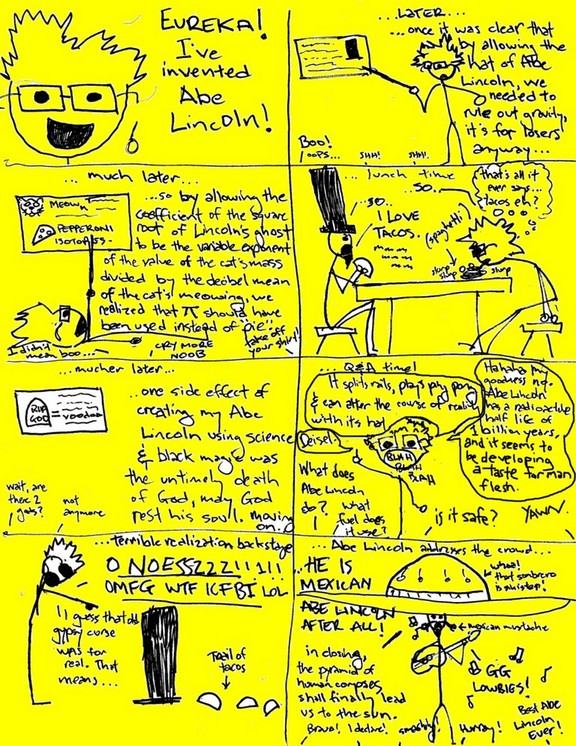 EUREKA!
I've
invented
Abe
Lincoln!
...LATER...
...once it was clear that
by allowing the
hat of Abe
Lincoln, we
needed to
rule out gravity,
it's for losers
anyway...
Boo!
oops...
SHH!
SHH!
... much later...
MEOW
PEPPERONI
ISOTOPES
...so by allowing the
coefficient of the square
root of Lincoln's ghost
to be the variable exponent
of the value of the cat's mass
divided by the decibel mean
of the cat's meowing, we
realized that π should have
been used instead of "pie"
I didn't
mean boo...
CRY MORE
NOOB
take off
your shirt!
... lunch time
...SO...
...SO...
I LOVE
TACOS.
(spaghetti)
slurp
slurp
slurp
that's all it
ever says...
tacos eh?
...mucher later...
RIP
GOD
voodoo
...one side effect of
creating my Abe
Lincoln using science
& black magic was
the untimely death
of God, may God
rest his soul. moving
on...
wait, are
there 2
gods?
not
anymore
...Q&A time!
It splits rails, plays ping pong
& can alter the course of reality
with its hat
Deisel
BLAH
BLAH
BLAH
What does
Abe Lincoln
do?
what
fuel does
it use?
Hahaha my
goodness no.
Abe Lincoln
has a radioactive
half life of
1 billion years,
and it seems to
be developing
a taste for man
flesh.
is it safe?
YAWN.
...terrible realization backstage
O NOESZZZ!!1!1
OMFG WTF ICFBT LOL
I guess that old
gypsy curse
was for
real. That
means...
Trail of
tacos
...Abe Lincoln addresses the crowd...
HE IS
MEXICAN
ABE LINCOLN
AFTER ALL!
whoa!
that sombrero
is
mexican mustache
in closing,
the pyramid of
human corpses
shall finally lead
us to the sun.
GG
LOWBIES!
Bravo! I declare!
smashing!
Hurray!
Best Abe
Lincoln
Ever!